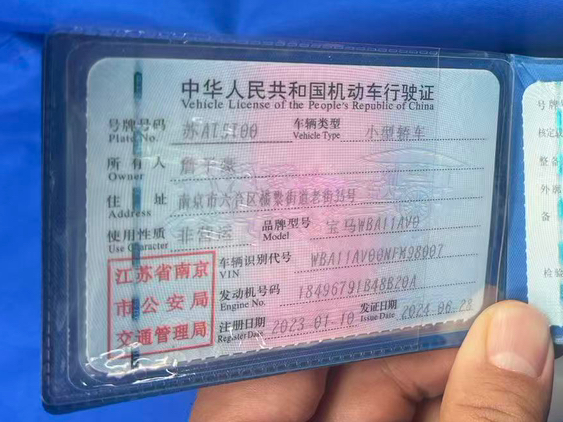 中华人民共和国机动车行驶证
Vehicle License of the People's Republic of China
号牌号码 苏AT5T00 车辆类型 小型轿车
Plate No. Vehicle Type
所有人
Owner
住址 南京市六合区横梁街道老街35号
Address
使用性质 非营运 品牌型号 宝马WBA11AV0
Use Character Model
车辆识别代号 WBA11AV00NFM98007
VIN
发动机号码 18496791B48B20A
Engine No.
注册日期 2023-01-10 发证日期 2024-06-23
Register Date Issue Date
江苏省南京
市公安局
交通管理局
号牌
核定
整备
外廓
备
检验